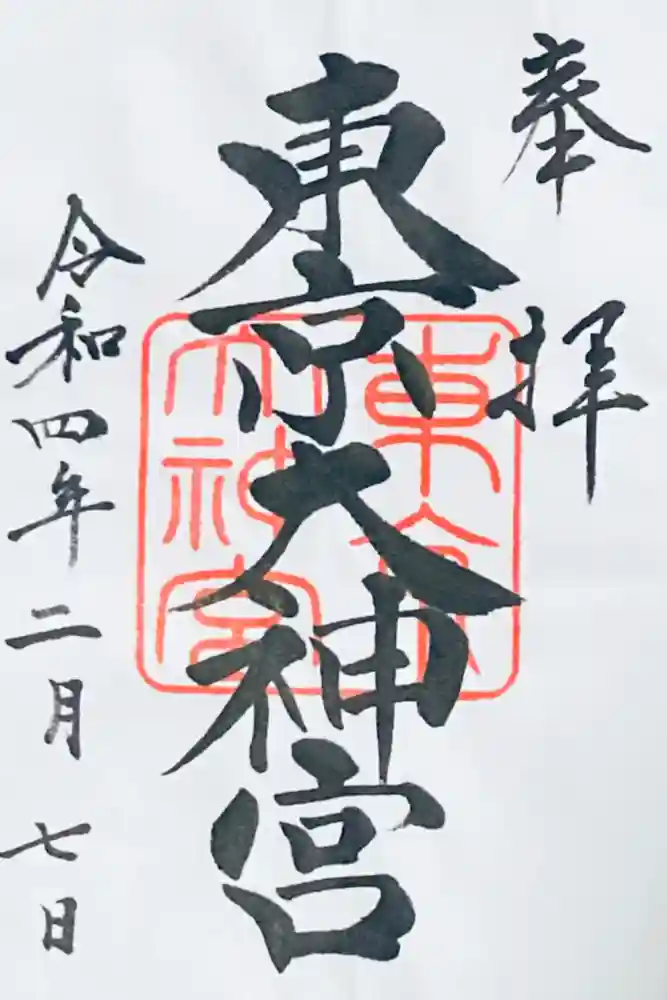 奉拝
東京大神宮
東京
大神宮
令和四年二月七日